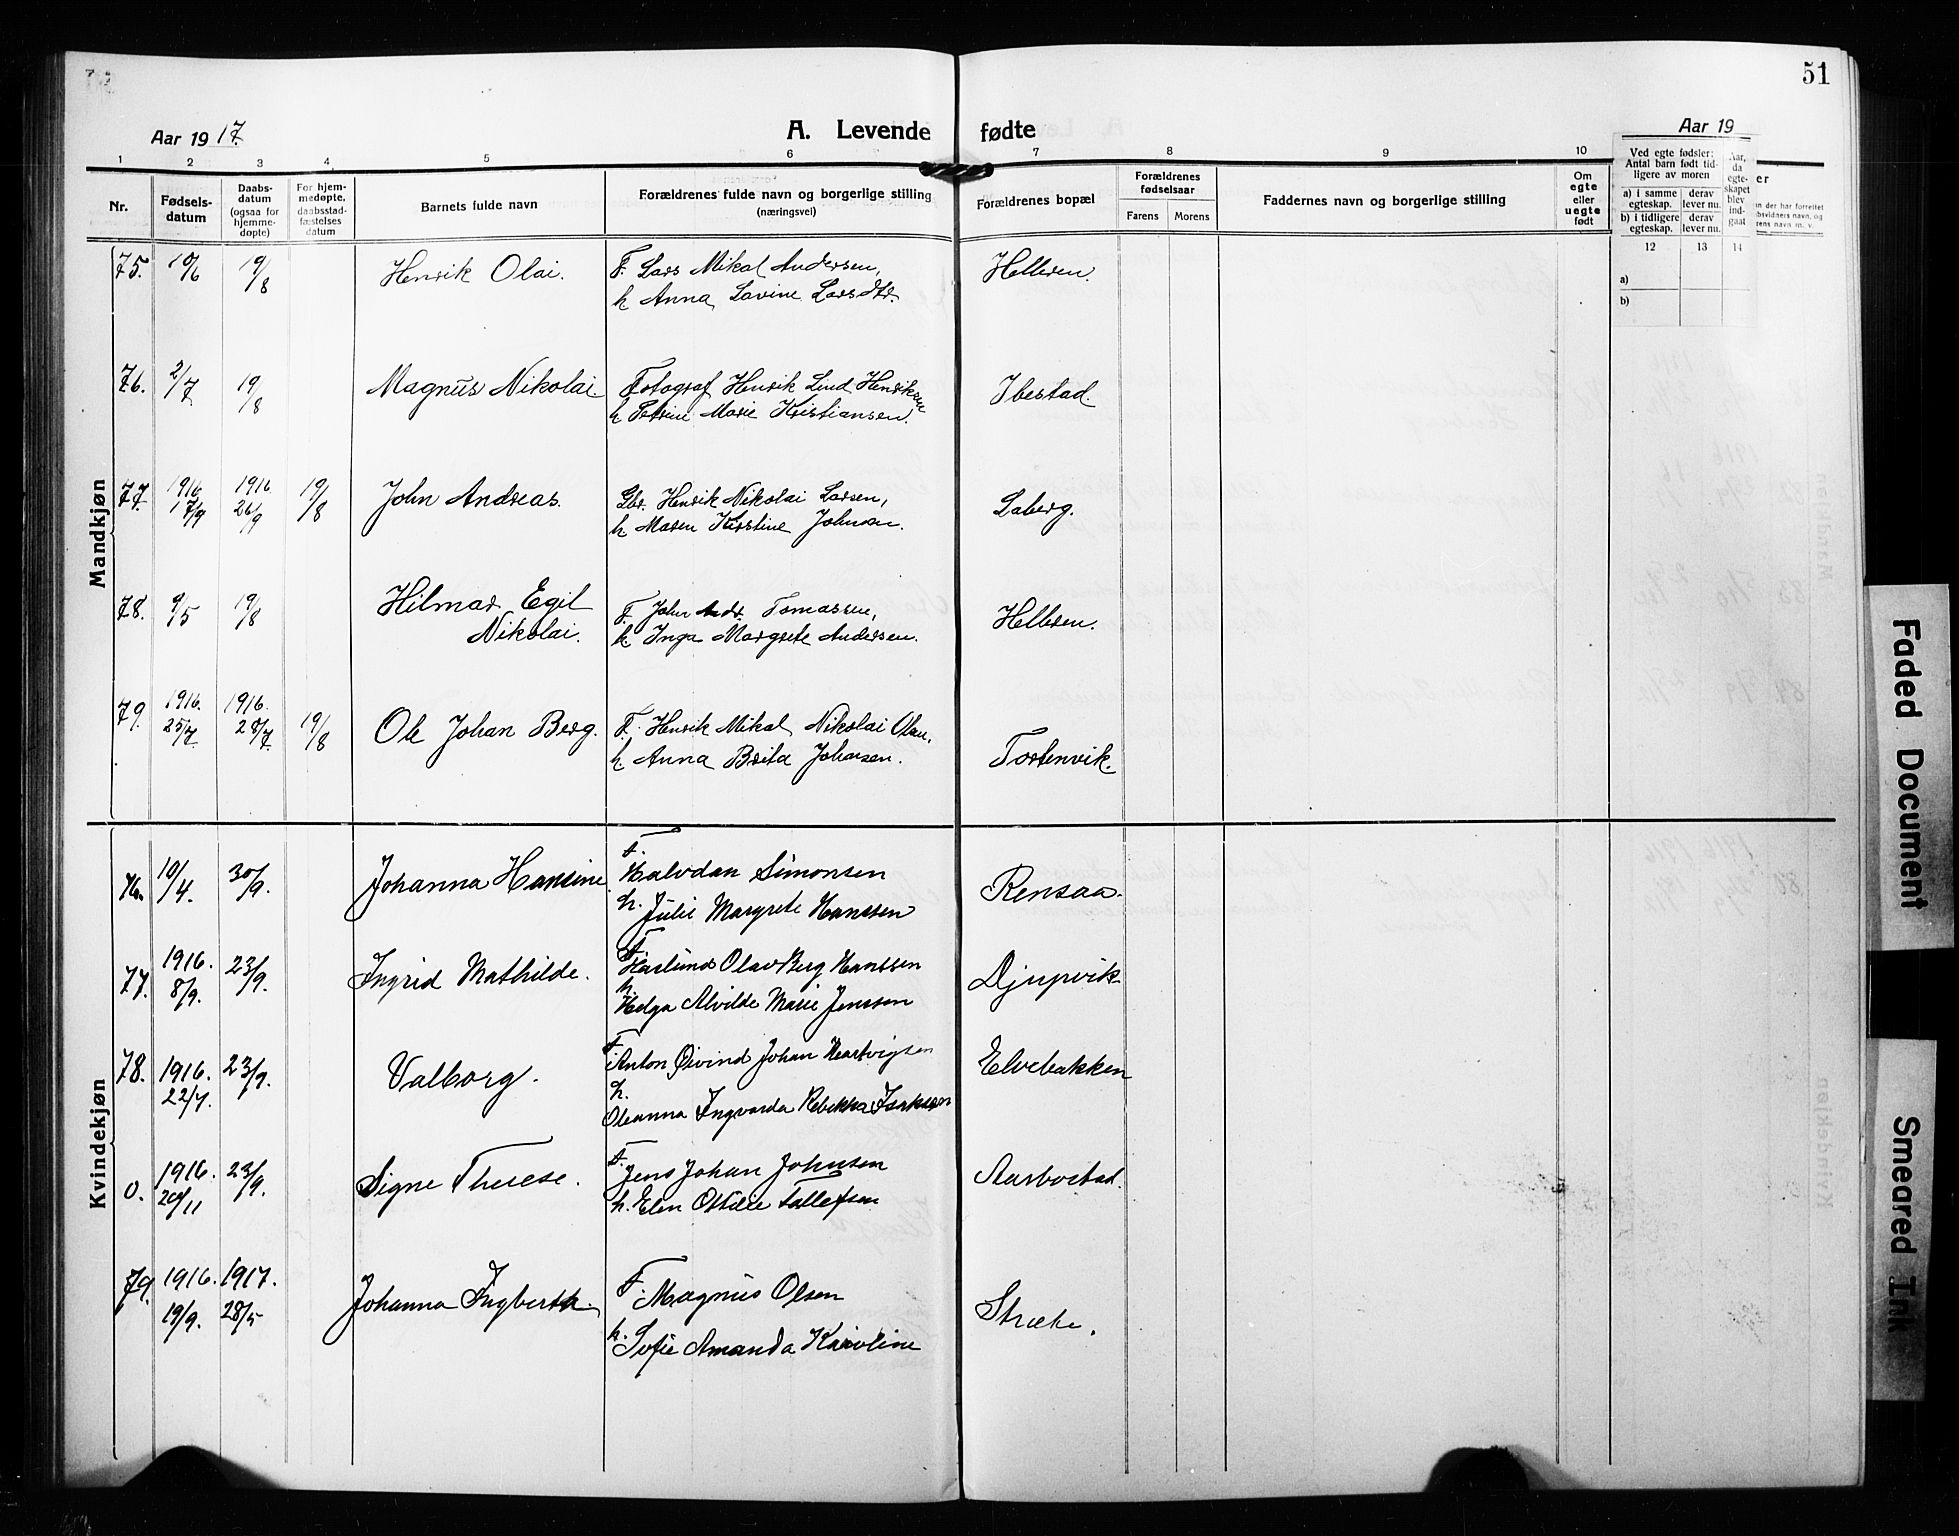 51
Aar 1917.
A. Levende fødte
Aar 19
1 2 3 4 5 6 7 8 9 10
Nr.
Fødsels-
datum
Daabs-
datum
(ogsaa for
hjemme-
døpte)
For hjem-
medøpte,
daabsstad-
fæstelses
datum
Barnets fulde navn
Forældrenes fulde navn og borgerlige stilling
(næringsvei)
Forældrenes bopæl
Forældrenes
fødselsaar
Farens Morens
Faddernes navn og borgerlige stilling
Om
egte
eller
uegte
født
Ved egte fødsler:
Antal barn født tid-
ligere av moren
a) i samme
egteskap.
derav
lever nu.
b) i tidligere
egteskap.
derav
lever nu.
Aar,
da
egte-
skapet
blev
ind-
gaat
12 13 14
a)
b)
er
n der har forrettet
bsvidners navn, og
rens navn m. v.
Mandkjøn
75. 10/6 19/8 Henrik Olai. F. Lars Mikal Andersen, Helleren.
h. Anna Lovine Larsdtr.
76. 2/7 19/8 Magnus Nikolai. Fotograf Henrik Lind Henriksen Ibestad.
h. Petrine Marie Kristiansen.
77. 1916 17/9 1916 26/9 19/8 John Andreas. Gbr. Henrik Nikolai Larsen, Laberg.
h. Maren Kirstine Johnsen.
78. 9/5 19/8 Hilmar Egil F. John Andr. Tomassen, Helleren.
Nikolai. h. Inga Margrete Andersen.
79. 1916. 25/7 1916. 28/7 19/8 Ole Johan Berg. F. Henrik Mikal Nikolai Olsen. Tostenvik.
h. Anna Brita Johansen.
Kvindekjøn
76. 10/4. 30/9. Johanna Hansine F.
Halvdan Simonsen Rensaa.
h. Julie Margrete Hanssen
77. 1916. 8/9. 23/9. Ingrid Mathilde. F.
Haslund Olav Berg Hanssen Djupvik
h.
Helga Alvilde Marie Jenssen
78. 1916. 22/7. 23/9. Valborg. F.
Anton Øivind Johan Hartvigsen Elvebakken
h.
Oleanna Ingvarda Rebekka Isaksen
0. 1916. 20/11 23/9. Signe Therese. F.
Jens Johan Johnsen Aarbostad.
h. Elen Ottilie Tollefsen
79. 1916. 19/9. 1917. 28/5 Johanna Ingberth. F. Magnus Olsen Strække.
h. Sofie Amanda Karoline
Faded Document
Smeared Ink